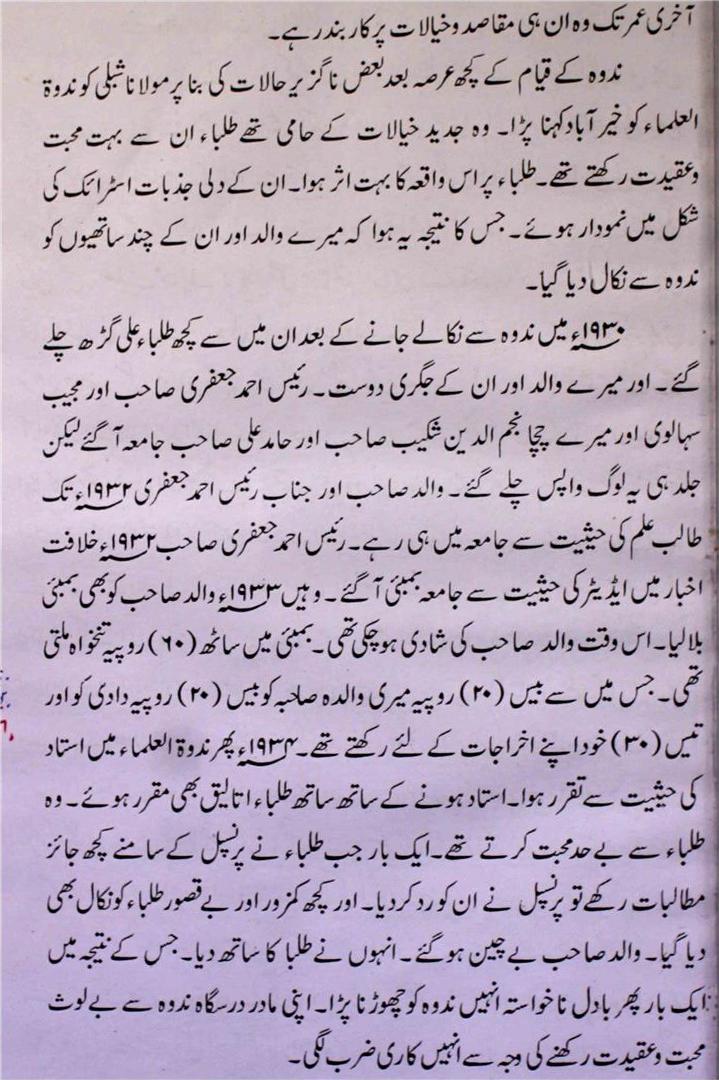 آخری عمر تک وہ ان ہی مقاصد و خیالات پر کار بند رہے۔
ندوہ کے قیام کے کچھ عرصہ بعد بعض ناگزیر حالات کی بنا پر مولانا شبلی کو ندوۃ
العلماء کو خیر آباد کہنا پڑا۔ وہ جدید خیالات کے حامی تھے طلباء ان سے بہت محبت
وعقیدت رکھتے تھے۔ طلباء پر اس واقعہ کا بہت اثر ہوا۔ ان کے دلی جذبات اسٹرائک کی
شکل میں نمودار ہوئے۔ جس کا نتیجہ یہ ہوا کہ میرے والد اور ان کے چند ساتھیوں کو
ندوہ سے نکال دیا گیا۔
۱۹۳۰ء میں ندوہ سے نکالے جانے کے بعد ان میں سے کچھ طلباء علی گڑھ چلے
گئے۔ اور میرے والد اور ان کے جگری دوست۔ رئیس احمد جعفری صاحب اور مجیب
سہالوی اور میرے چچا نجم الدین شکیب صاحب اور حامد علی صاحب جامعہ آ گئے لیکن
جلد ہی یہ لوگ واپس چلے گئے۔ والد صاحب اور جناب رئیس احمد جعفری ۱۹۳۲ء تک
طالب علم کی حیثیت سے جامعہ میں ہی رہے۔ رئیس احمد جعفری صاحب ۱۹۳۲ء خلافت
اخبار میں ایڈیٹر کی حیثیت سے جامعہ بمبئی آ گئے۔ وہیں ۱۹۳۳ء والد صاحب کو بھی بمبئی
بلالیا۔ اس وقت والد صاحب کی شادی ہو چکی تھی۔ بمبئی میں ساٹھ (۶۰) روپیہ تنخواہ ملتی
تھی۔ جس میں سے بیس (۲۰) روپیہ میری والدہ صاحبہ کو بیس (۲۰) روپیہ دادی کو اور
تیس (۳۰) خود اپنے اخراجات کے لئے رکھتے تھے۔ ۱۹۳۴ء پھر ندوۃ العلماء میں استاد
کی حیثیت سے تقرر ہوا۔ استاد ہونے کے ساتھ ساتھ طلباء اتالیق بھی مقرر ہوئے۔ وہ
طلباء سے بے حد محبت کرتے تھے۔ ایک بار جب طلباء نے پرنسپل کے سامنے کچھ جائز
مطالبات رکھے تو پرنسپل نے ان کو رد کر دیا۔ اور کچھ کمزور اور بے قصور طلباء کو نکال بھی
دیا گیا۔ والد صاحب بے چین ہو گئے۔ انہوں نے طلبا کا ساتھ دیا۔ جس کے نتیجہ میں
ایک بار پھر بادل ناخواستہ انہیں ندوہ کو چھوڑنا پڑا۔ اپنی مادر درسگاہ ندوہ سے بے لوث
محبت وعقیدت رکھنے کی وجہ سے انہیں کاری ضرب لگی۔